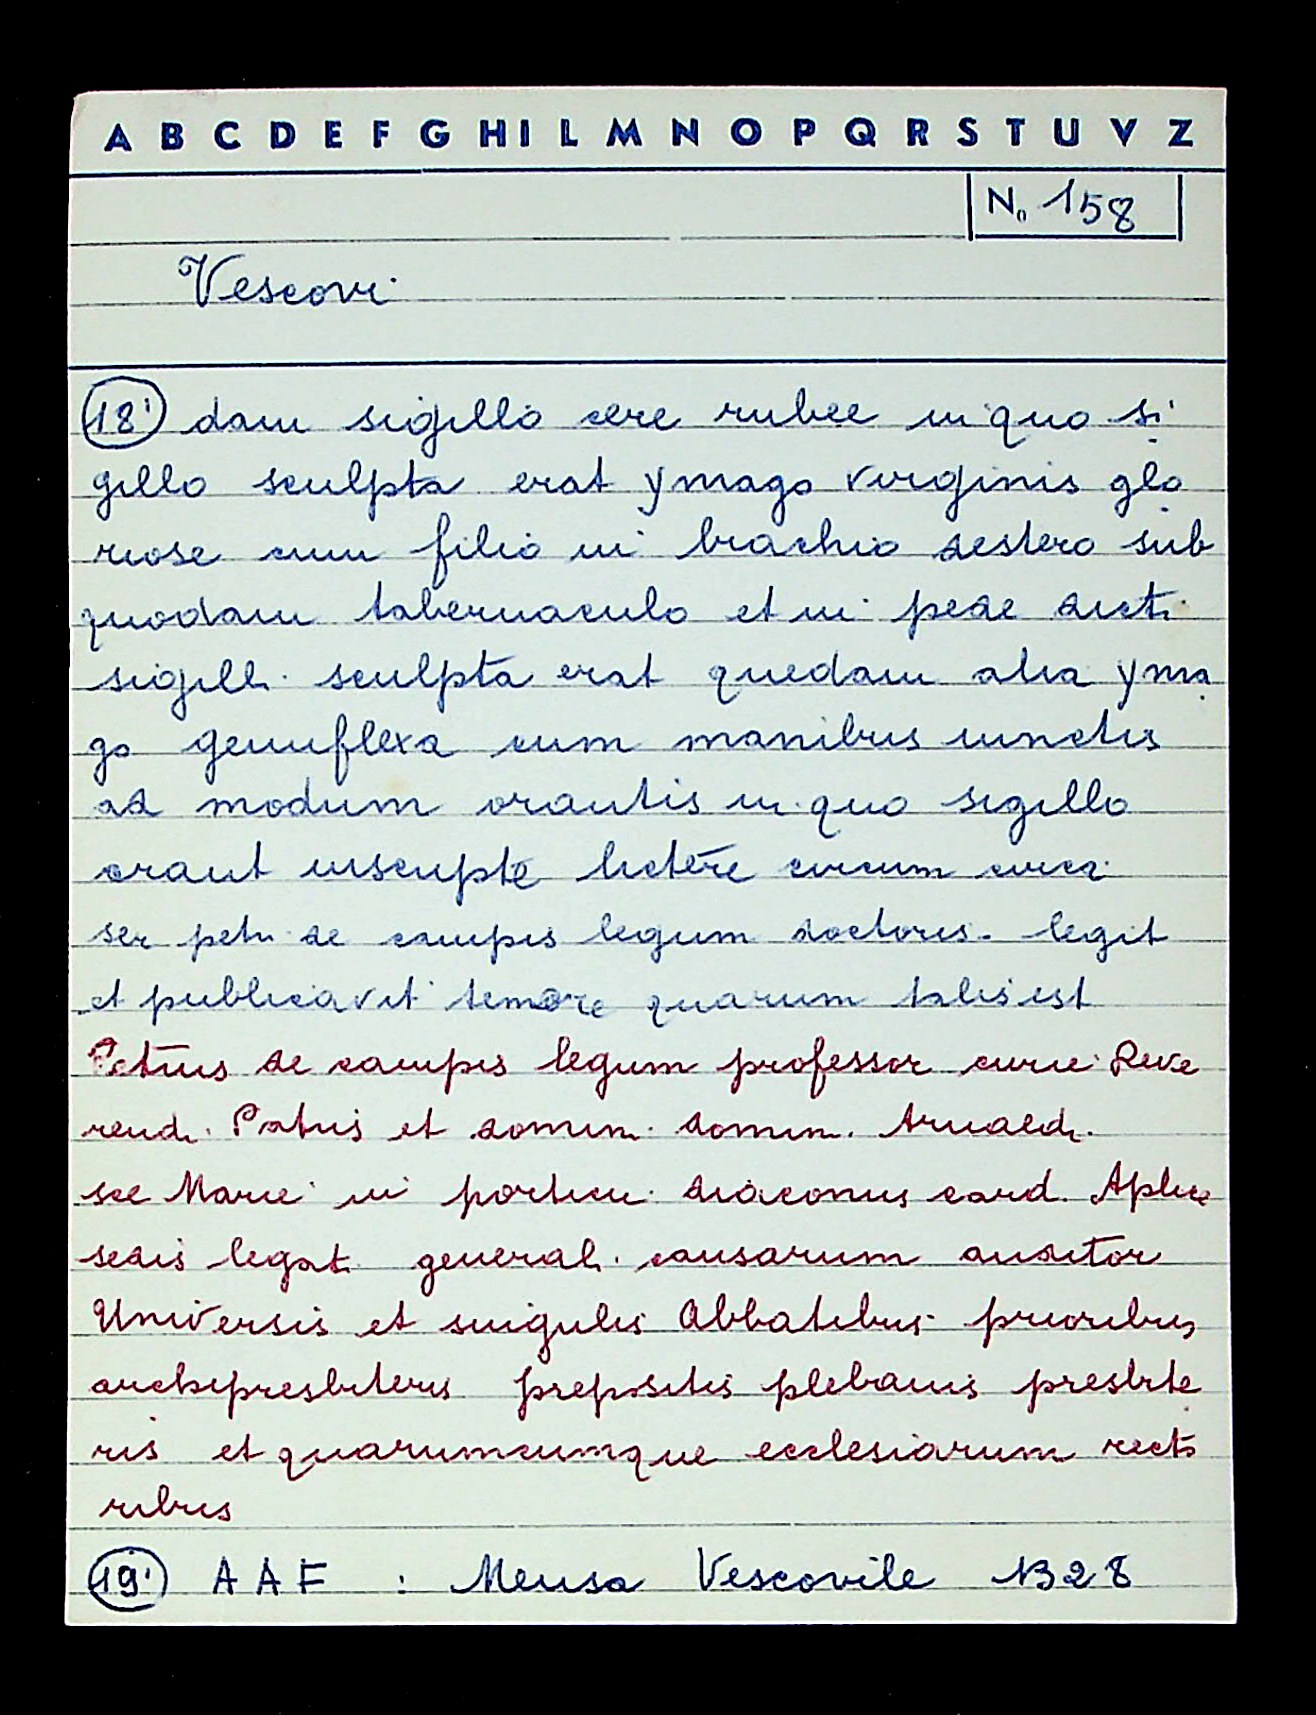 A B C D E F G H I L M N O P Q R S T U V Z
N. 158
Vescovi
18 dam sigillo cere rubee in quo si
gillo sculpta erat ymago virginis glo
riose cum filio in brachio destero sub
quodam tabernaculo et in pede dicti
sigilli sculpta erat quedam alia yma
go genuflexa cum manibus iunctis
ad modum orantis in quo sigillo
erant inscripte lictere circum circa
ser petri de campis legum doctoris. legit
et publicavit tenore quarum talis est
Petrus de campis legum professor curie Reve
rendi Patris et domin. domin. Arnaldi.
sce Marie in porticu diaconus card. Aplice
sedis legat. general. causarum auditor
Universis et singulis Abbatibus prioribus
archipresbiteris prepositis plebanis presbite
ris et quarumcumque ecclesiarum recto
ribus
19 A A F : Mensa Vescovile B 28